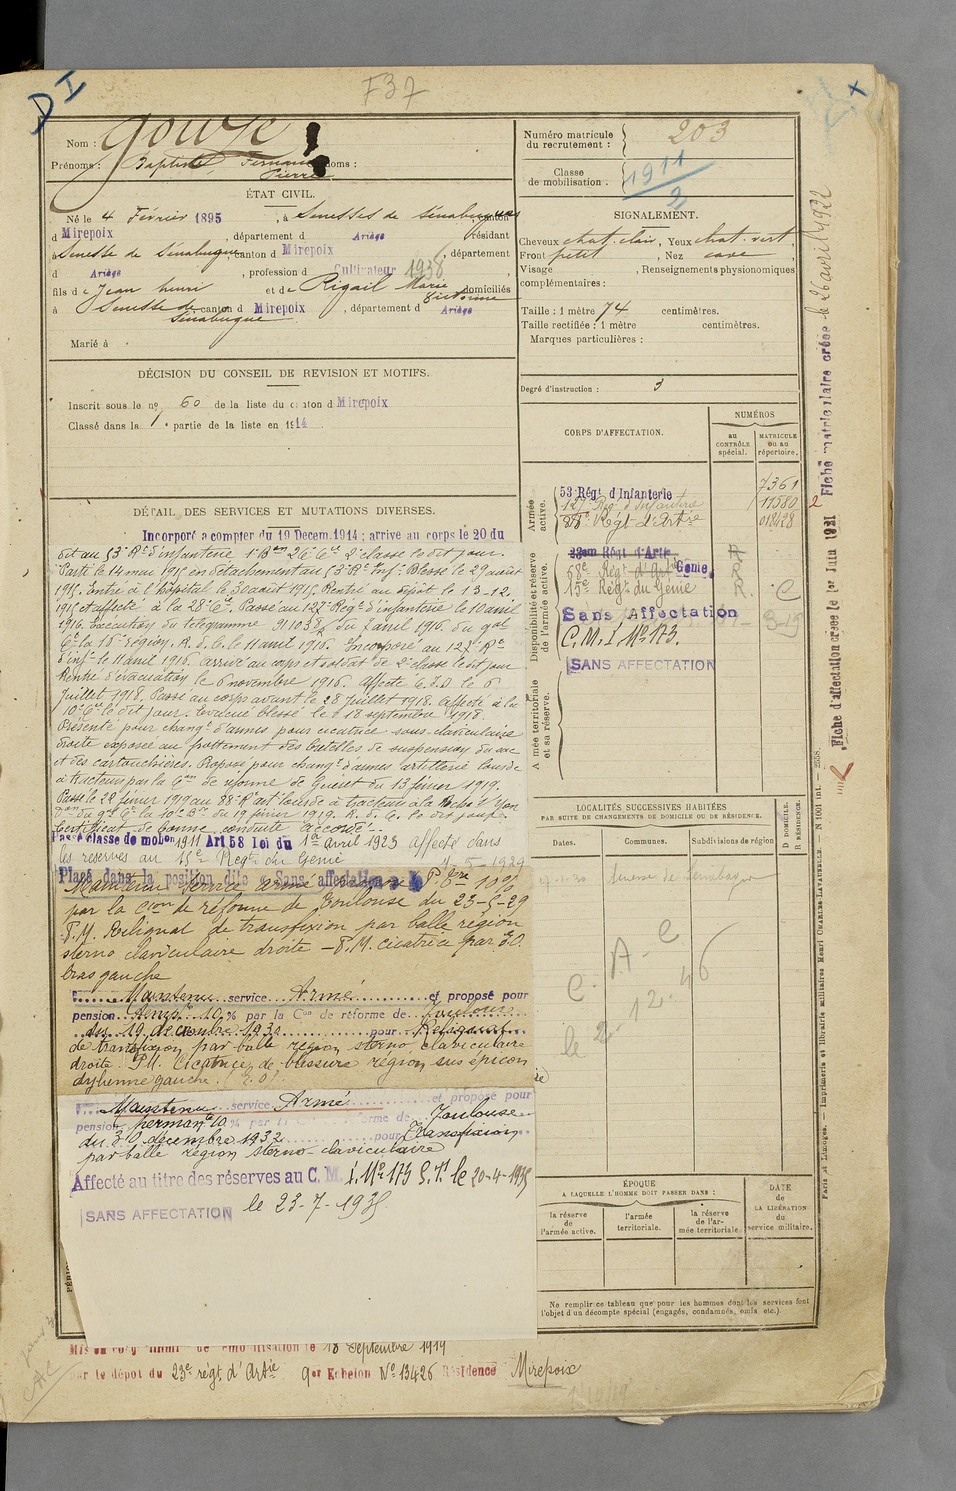 D I
F37
Nom : Gouze
Prénoms : Baptiste Fernand noms :
Pierre
ÉTAT CIVIL.
Né le 4 Février 1895, à Senesses de Senabugues, canton
d Mirepoix, département d Ariège résidant
à Senesse de Senabugue, canton d Mirepoix, département
d Ariège, profession d Cultivateur 1938
fils de Jean henri et de Rigail Marie domiciliés
Victorine
à Senesse de canton d Mirepoix, département d Ariège
Senabugue
Marié à
DÉCISION DU CONSEIL DE REVISION ET MOTIFS.
Inscrit sous le no 60 de la liste du canton d Mirepoix
Classé dans la 1e partie de la liste en 1914.
DÉTAIL DES SERVICES ET MUTATIONS DIVERSES.
Incorporé a compter du 19 Decem. 1914 ; arrive au corps le 20 du
dit au 53e Rt d'infanterie 1er Bon 26e Cie 2e classe le dit jour.
Parti le 14 mai 1915 en détachement au 53e Rt Infie Blessé le 29 août
1915. Entré à l'hôpital le 30 août 1915. Rentré au dépôt le 13-12.
1915 et affecté à la 28e Cie. Passé au 127e Regt d'infanterie le 10 avril
1916. Exécution du télégramme 911038 du 2 avril 1916. du gal
Ct la 16e région. A. d. C. le 11 avril 1916. Incorporé au 127e Rt
d'infie le 11 avril 1916. arrivé au corps et soldat de 2e classe le dit jour
Rentré d'évacuation le 6 novembre 1916. Affecté C.I.D. le 6
Juillet 1918. Passé au corps avant le 28 Juillet 1918. Affecté à la
10e Cie le dit jour. Evacué blessé le 18 septembre 1918.
Présenté pour changt d'armes pour cicatrice sous-claviculaire
droite exposée au frottement des bretelles de suspension du sac
et des cartouchières. Proposé pour changt d'armes artillerie lourde
à tracteurs par la Con de réforme de Guéret du 13 février 1919.
Passé le 22 février 1919 au 88e Rt art lourde à tracteurs à la Roche s/ Yon
Don du gal Ct la 10e Bon du 19 février 1919. A. d. C. le dit jour.
Certificat de bonne conduite accordé.
Passé classe de mobon 1911 Art 58 Loi du 1er avril 1923 affecté dans
les réserves au 15e Regt du Génie
Placé dans la position dite « Sans affectation » le 1-5-1929
Maintenu service armé 10%
par la Cion de réforme de Toulouse du 23-5-29
P.M. Reliquat de transfixion par balle région
sterno claviculaire droite - P.M. cicatrice par E.O.
bras gauche
Maintenu service Armé et proposé pour
pension temp. 10 % par la Con de réforme de Toulouse
du 19 décembre 1930 pour Reliquat
de transfixion par balle région sterno claviculaire
droite. PM. Cicatrice de blessure région sus épicon
dylienne gauche. (E.O)
Maintenu service Armé et proposé pour
pension permante 10 % par la C de réforme de Toulouse
du 30 décembre 1932 pour Transfixion
par balle région sterno-claviculaire
Affecté au titre des réserves au C. M. I. No 173 S.T. le 20-4-1935
SANS AFFECTATION le 23-7-1935
18 Septembre 1919
Par le dépôt du 23e régt d'Artie 9er Echelon No 13426 Résidence Mirepoix
Numéro matricule
du recrutement : 203
Classe
de mobilisation : 1911
2
SIGNALEMENT.
Cheveux chat. clair, Yeux chat. vert,
Front petit, Nez cave,
Visage , Renseignements physionomiques
complémentaires :
Taille : 1 mètre 74 centimètres.
Taille rectifiée : 1 mètre centimètres.
Marques particulières :
Degré d'instruction : 3
CORPS D'AFFECTATION.
NUMÉROS
au
CONTRÔLE
spécial.
MATRICULE
ou au
répertoire.
Armée
active.
53 Régt d'Infanterie 7361
127e Regt d'Infanterie 11580
88e Régt d'Artie 012428
Disponibilité et réserve
de l'armée active.
23em Régt d'Artie R
15e Régt du Génie R. C
Sans Affectation
C.M.I No 173.
SANS AFFECTATION
Armée territoriale
et sa réserve.
LOCALITÉS SUCCESSIVES HABITÉES
PAR SUITE DE CHANGEMENTS DE DOMICILE OU DE RÉSIDENCE.
Dates.
Communes.
Subdivisions de région
D. DOMICILE.
R. RÉSIDENCE.
Senesse de Senabugue
C. A - C
le 2 - 12 - 46
ÉPOQUE
A LAQUELLE L'HOMME DOIT PASSER DANS :
la réserve
de
l'armée active.
l'armée
territoriale.
la réserve
de l'ar-
mée territoriale.
DATE
de
LA LIBÉRATION
du
service militaire.
Ne remplir ce tableau que pour les hommes dont les services font
l'objet d'un décompte spécial (engagés, condamnés, omis etc.).
Fiche matriculaire créée le 26 avril 1922
Fiche d'affectation créée le 1er Juin 1921
Paris et Limoges. — Imprimerie et librairie militaires Henri CHARLES-LAVAUZELLE. — N 1001 int.
CAC